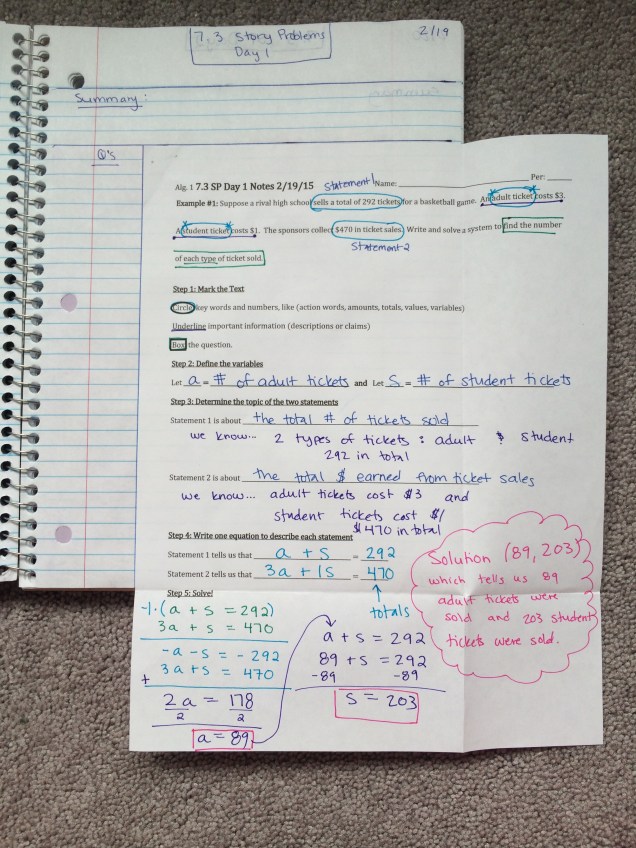 7.3 Story Problems
Day 1
2/19
Summary:
Q's
Alg. 1 7.3 SP Day 1 Notes 2/19/15 Statement 1 Name: Per:
Example #1: Suppose a rival high school sells a total of 292 tickets for a basketball game. An adult ticket costs $3.
A student ticket costs $1. The sponsors collect $470 in ticket sales. Write and solve a system to find the number
Statement 2
of each type of ticket sold.
Step 1: Mark the Text
Circle key words and numbers, like (action words, amounts, totals, values, variables)
Underline important information (descriptions or claims)
Box the question.
Step 2: Define the variables
Let a = # of adult tickets and Let s = # of student tickets
Step 3: Determine the topic of the two statements
Statement 1 is about the total # of tickets sold
we know... 2 types of tickets : adult & student
292 in total
Statement 2 is about the total $ earned from ticket sales
we know... adult tickets cost $3 and
student tickets cost $1
$470 in total
Step 4: Write one equation to describe each statement
Statement 1 tells us that a + s = 292
Statement 2 tells us that 3a + 1s = 470
totals
Step 5: Solve!
-1·(a + s = 292)
3a + s = 470
-a - s = -292
+ 3a + s = 470
2a = 178
2 2
a = 89
a + s = 292
89 + s = 292
-89 -89
s = 203
Solution (89, 203)
which tells us 89
adult tickets were
sold and 203 student
tickets were sold.